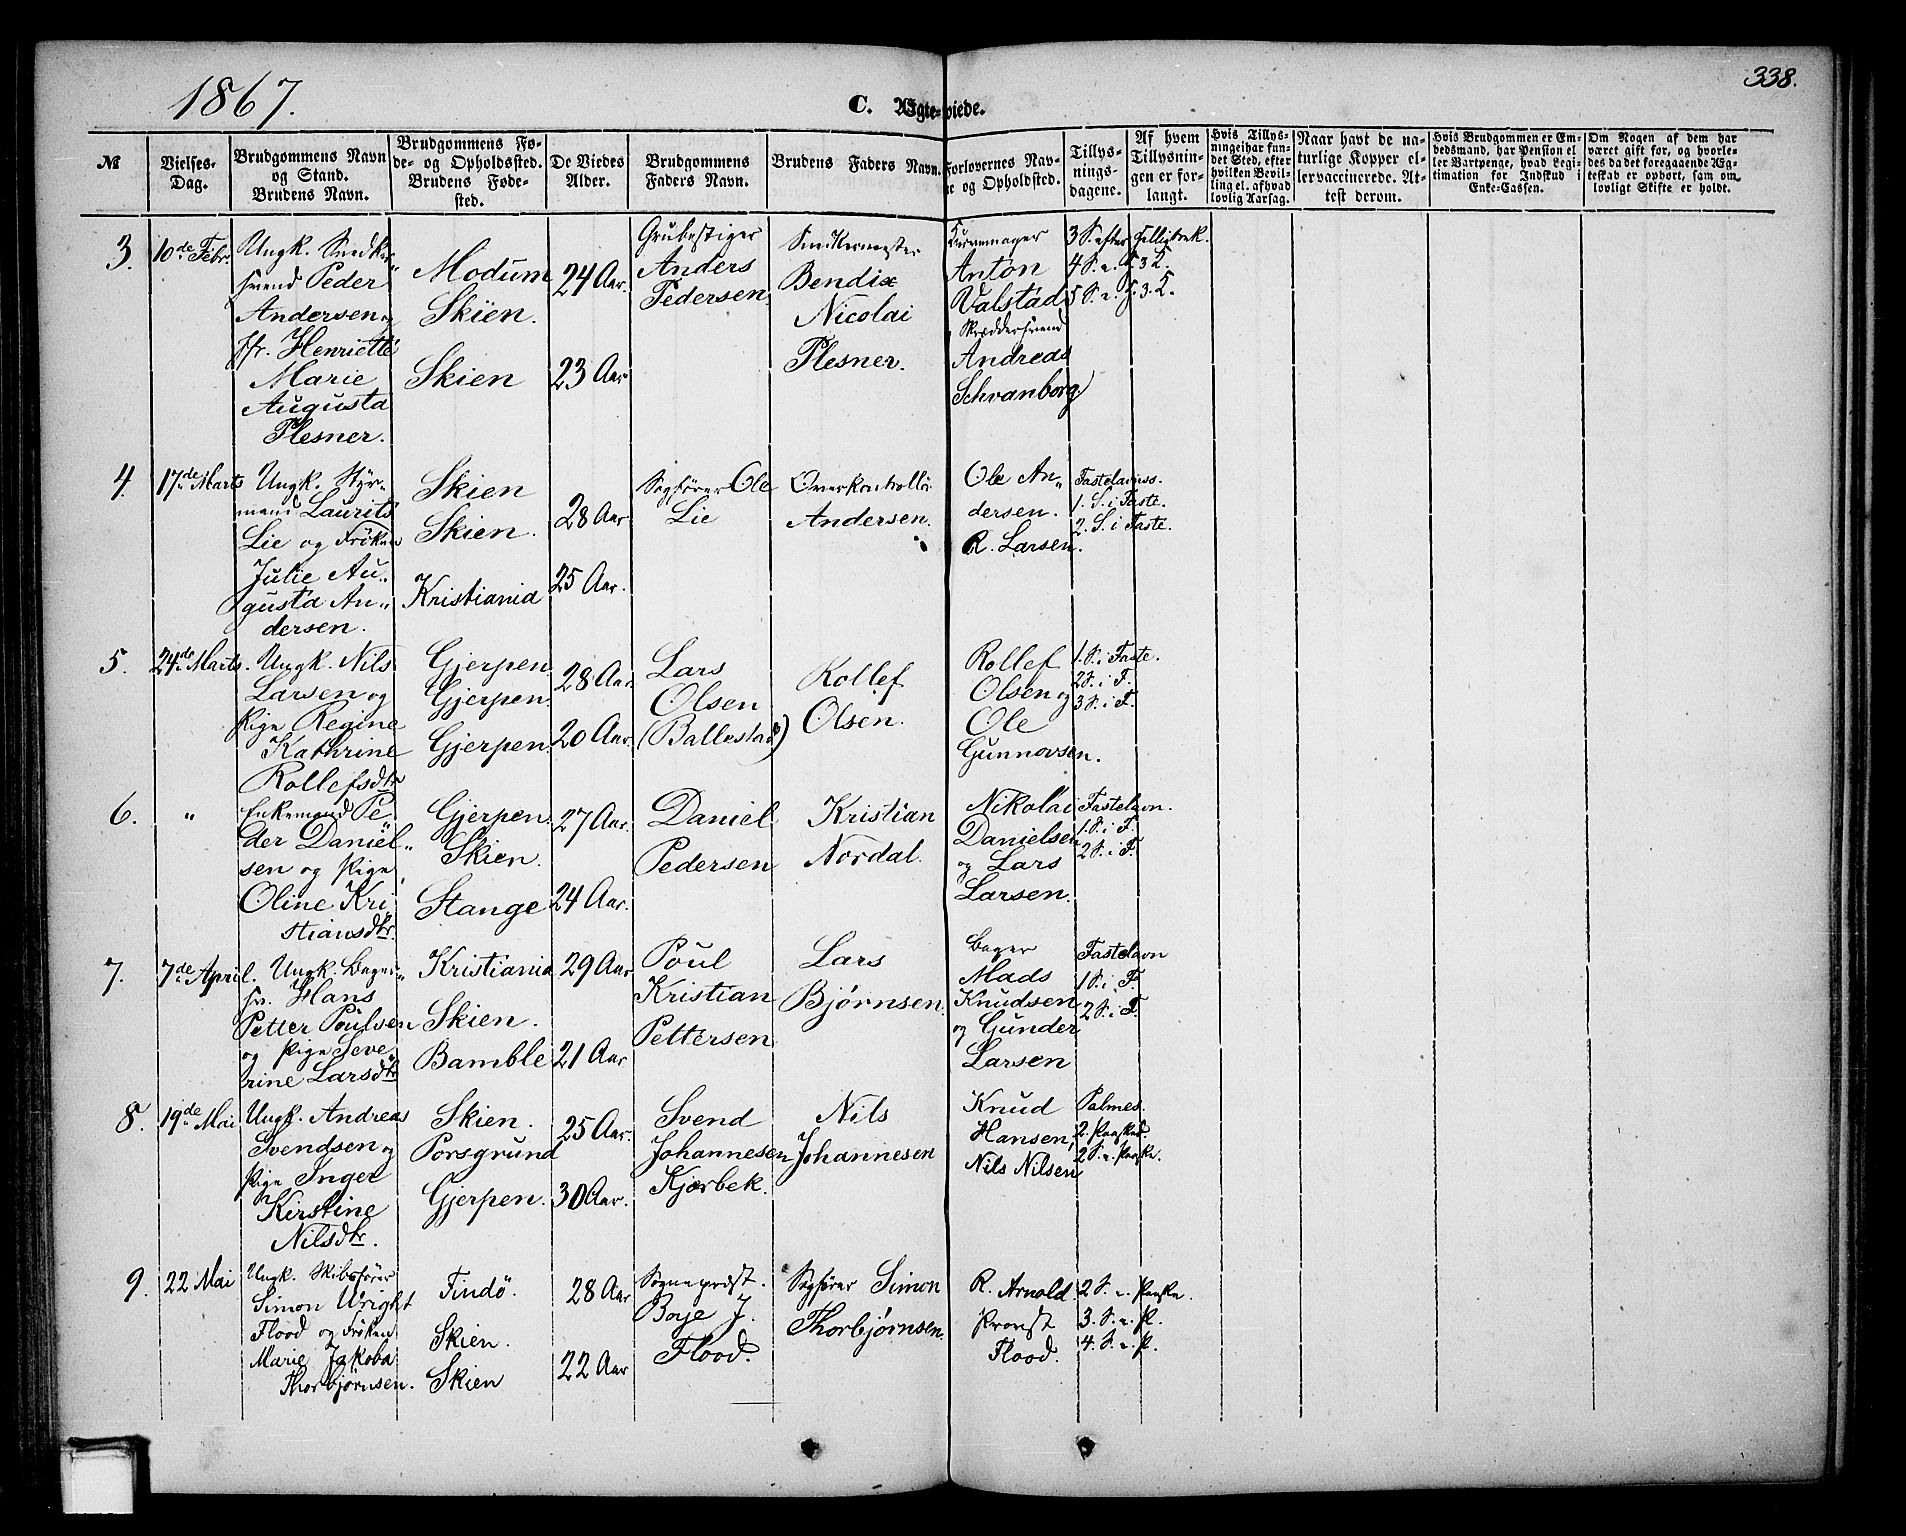 1867.
C. Ægteviede.
338.
№
Vielses-
Dag.
Brudgommens Navn
og Stand.
Brudens Navn.
Brudgommens Fø-
de- og Opholdssted.
Brudens Føde-
sted.
De Viedes
Alder.
Brudgommens
Faders Navn.
Brudens Faders Navn.
Forlovernes Nav-
ne og Opholdsted.
Tillys-
nings-
dagene.
Af hvem
Tillysnin-
gen er for-
langt.
Hvis Tillys-
ning ei har fun-
det Sted, efter
hvilken Bevil-
ling el. af hvad
lovlig Aarsag.
Naar havt de na-
turlige Kopper el-
ler vaccinerede. At-
test derom.
Hvis Brudgommen er Em-
bedsmand, har Pension el-
ler Vartpenge, hvad Legi-
timation for Indskud i
Enke-Cassen.
Om Nogen af dem har
været gift før, og hvorle-
des da det foregaaende Æg-
teskab er ophørt, sam om
lovligt Skifte er holdt.
3.
10de Febr.
Ungk. Snedker„
svend Peder
Andersen og
ffr. Henriette
Marie
Augusta
Plesner.
Modum
Skien.
Skien
24 Aar.
23 Aar
Grubestiger
Anders
Pedersen
Bendix
Nicolai
Plesner.
Anton
Valstad
Skræddersvend
Andreas
Schvanborg
3 S. efter Helligtrek.
4 S. e. H. 3 K.
5 S. e. H. 3. K.
4.
17de Marts
Ungk. Styr„
mand Laurits
Lie og Frøken
Julie Au„
gusta An„
dersen.
Skien
Skien.
Kristiania
28 Aar
25 Aar.
Sagfører Ole
Lie
Overkontrollør
Andersen.
Ole An„
dersen.
R. Larsen.
Fastelavnss.
1. S. i Faste.
2. S. i Faste.
5.
24de Marts.
Ungk. Nils
Larsen og
Pige Regine
Kathrine
Rollefsdtr
Gjerpen
Gjerpen
Gjerpen
28 Aar.
20 Aar.
Lars
Olsen
(Ballestad)
Rollef
Olsen.
Rollef
Olsen og
Ole
Gunnovsen.
1. S. i Faste.
2 S. i F.
3 S. i F.
6.
„
Enkemand Pe
der Daniel„
sen og Pige
Oline Kri
stiansdtr.
Gjerpen
Skien.
Stange
27 Aar.
24 Aar.
Daniel
Pedersen
Kristian
Nordal.
Nikolai
Danielsen
og Lars
Larsen.
Fastelavn.
1. S. i F.
2 S. i F.
7.
7de April.
Ungk. Bager„
sv. Hans
Petter Poulsen
og Pige Seve
rine Larsdtr
Kristiania
Skien.
Bamble
29 Aar
21 Aar
Poul
Kristian
Pettersen
Lars
Bjørnsen.
Bager
Mads
Knudsen
og Gunder
Larsen
Fastelavn
1 S. i F.
2 S. i F.
8.
19de Mai
Ungk. Andreas
Svendsen og
Pige Inger
Kirstine
Nilsdtr.
Skien.
Porsgrund
Gjerpen.
25 Aar.
30 Aar.
Svend
Johannesen
Kjørbek.
Nils
Johannesen
Knud
Hansen,
Nils Nilsen
Palmes.
2. Paaskd.
2 S. e. Paaske.
9.
22 Mai
Ungk. Skibsfører
Simon Wright
Flood og Frøken
Marie Jakoba
Thorbjørnsen.
Findö.
Skien.
Skien
28 Aar
22 Aar
Sognepræst.
Boje J.
Flood.
Sagfører Simon
Thorbjørnsen.
R. Arnold.
Provst
Flood.
2 S. e. Paaske.
3. S. e. P.
4. S. e. P.